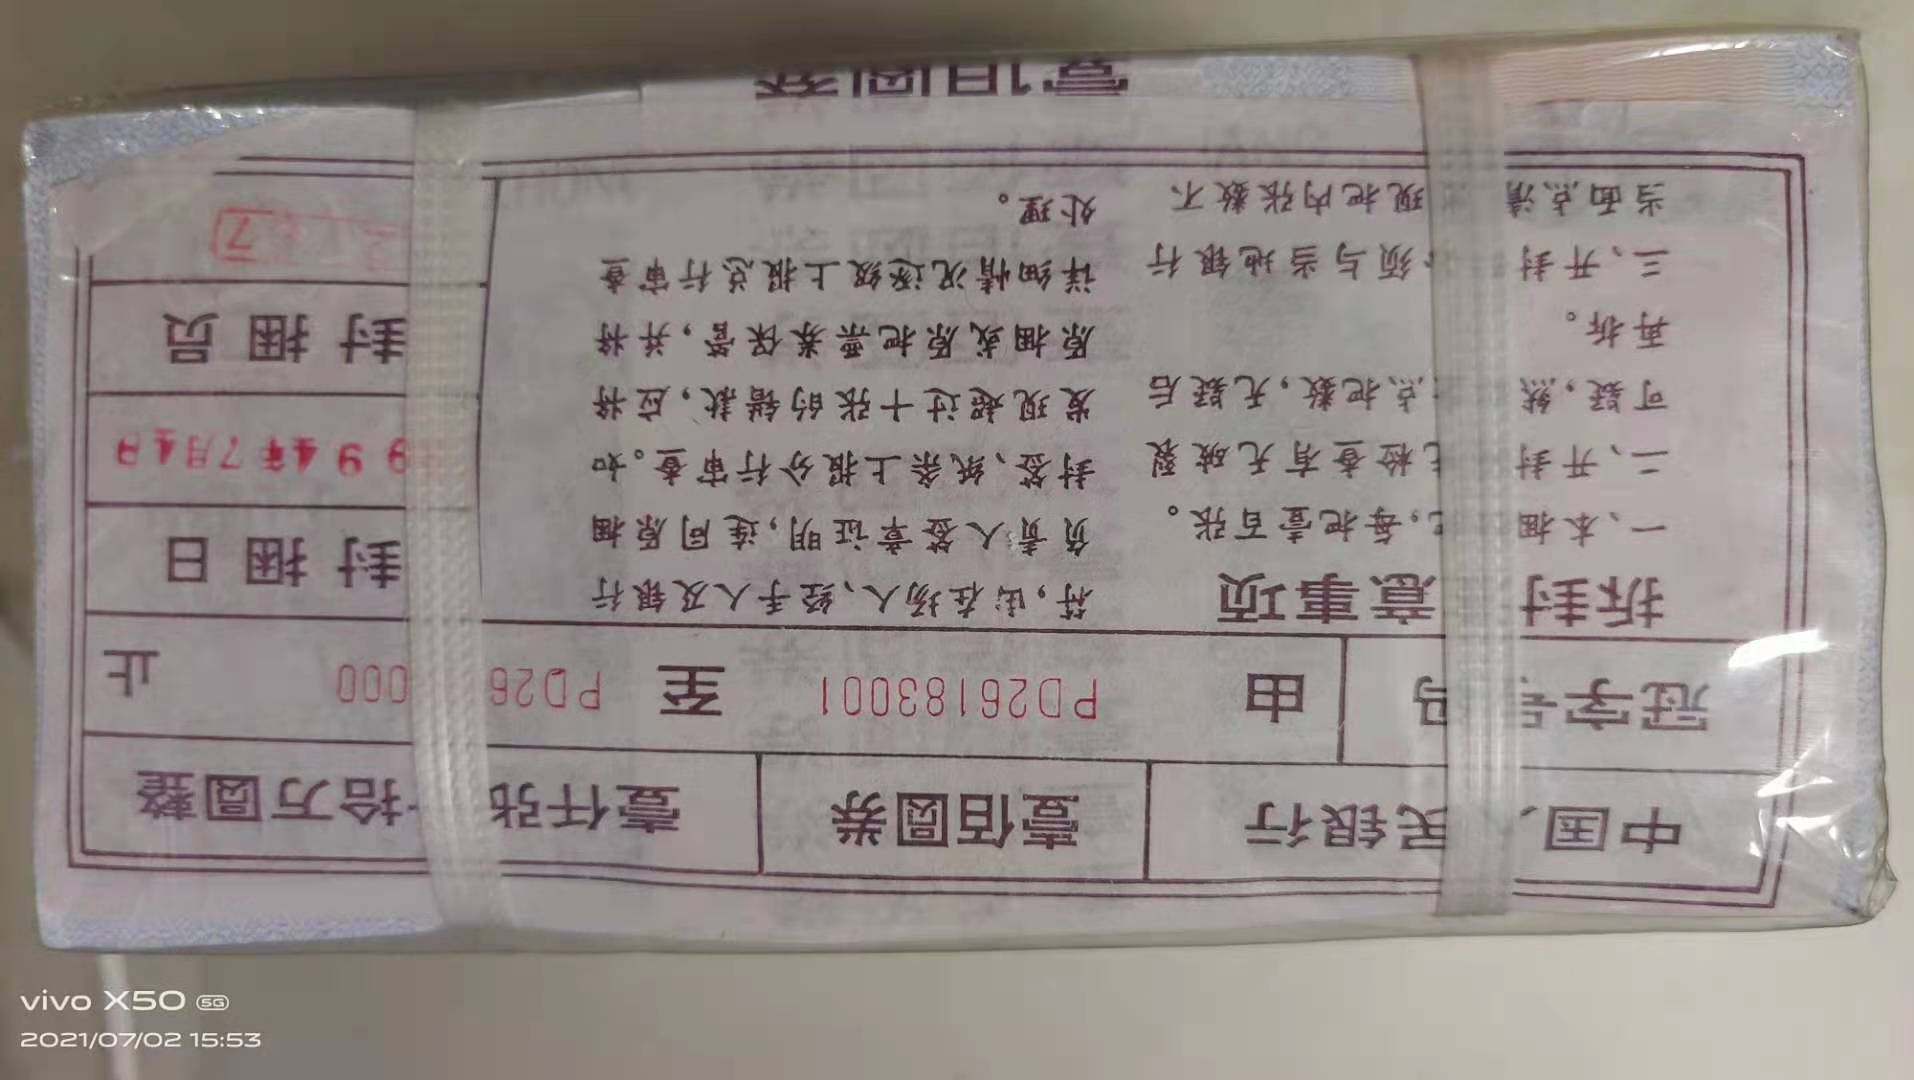 中国 民银行 壹佰圆券 壹仟张 拾万圆整
冠字号码 由 PD26183001 至 PD26 000 止
拆封 意事项
一、本捆 ,每把壹百张。
二、开封 检查有无破裂
可疑,然 点把数,无疑后
再拆。
三、开封 须与当地银行
当面点清 现把内张数不
符,由在场人、经手人及银行
负责人签章证明,连同原捆
封签、纸条上报分行审查。如
发现超过十张的错款,应将
原捆或原把票券保管,并将
详细情况逐级上报总行审查
处理。
封捆日
994年7月4日
封捆员
7
壹佰圆券
vivo X50 5G
2021/07/02 15:53